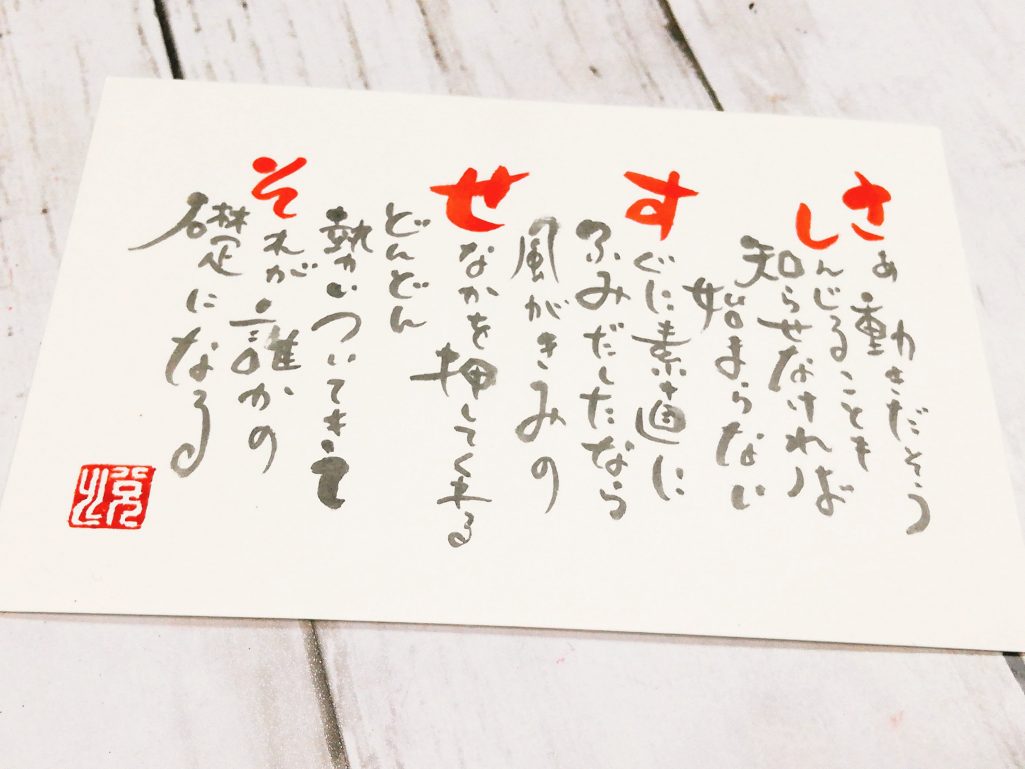 さあ動きだそう
しんじることも
知らせなければ
始まらない
すぐに素適に
ふみだしたなら
風がきみの
せなかを押してくれる
どんどん
勢いついてきて
それが誰かの
礎になる